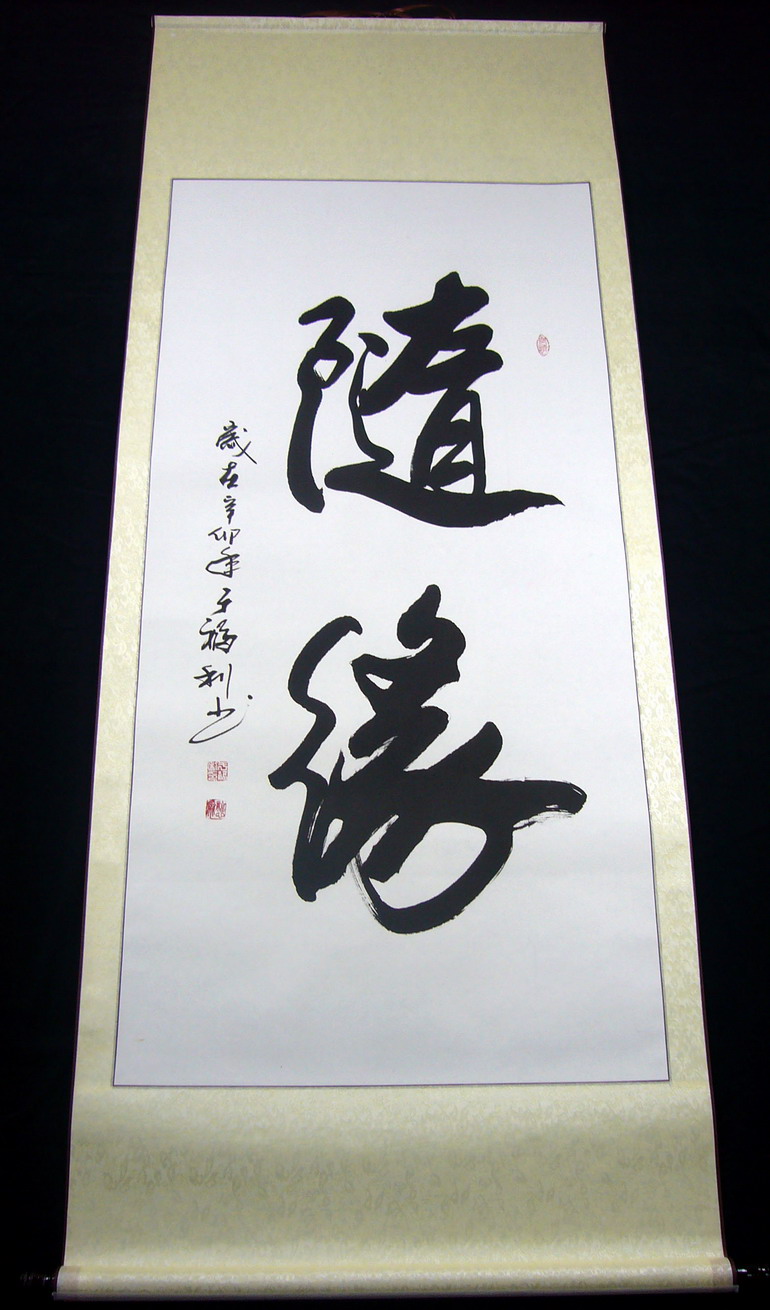 隨緣
歲在辛卯年于福利书